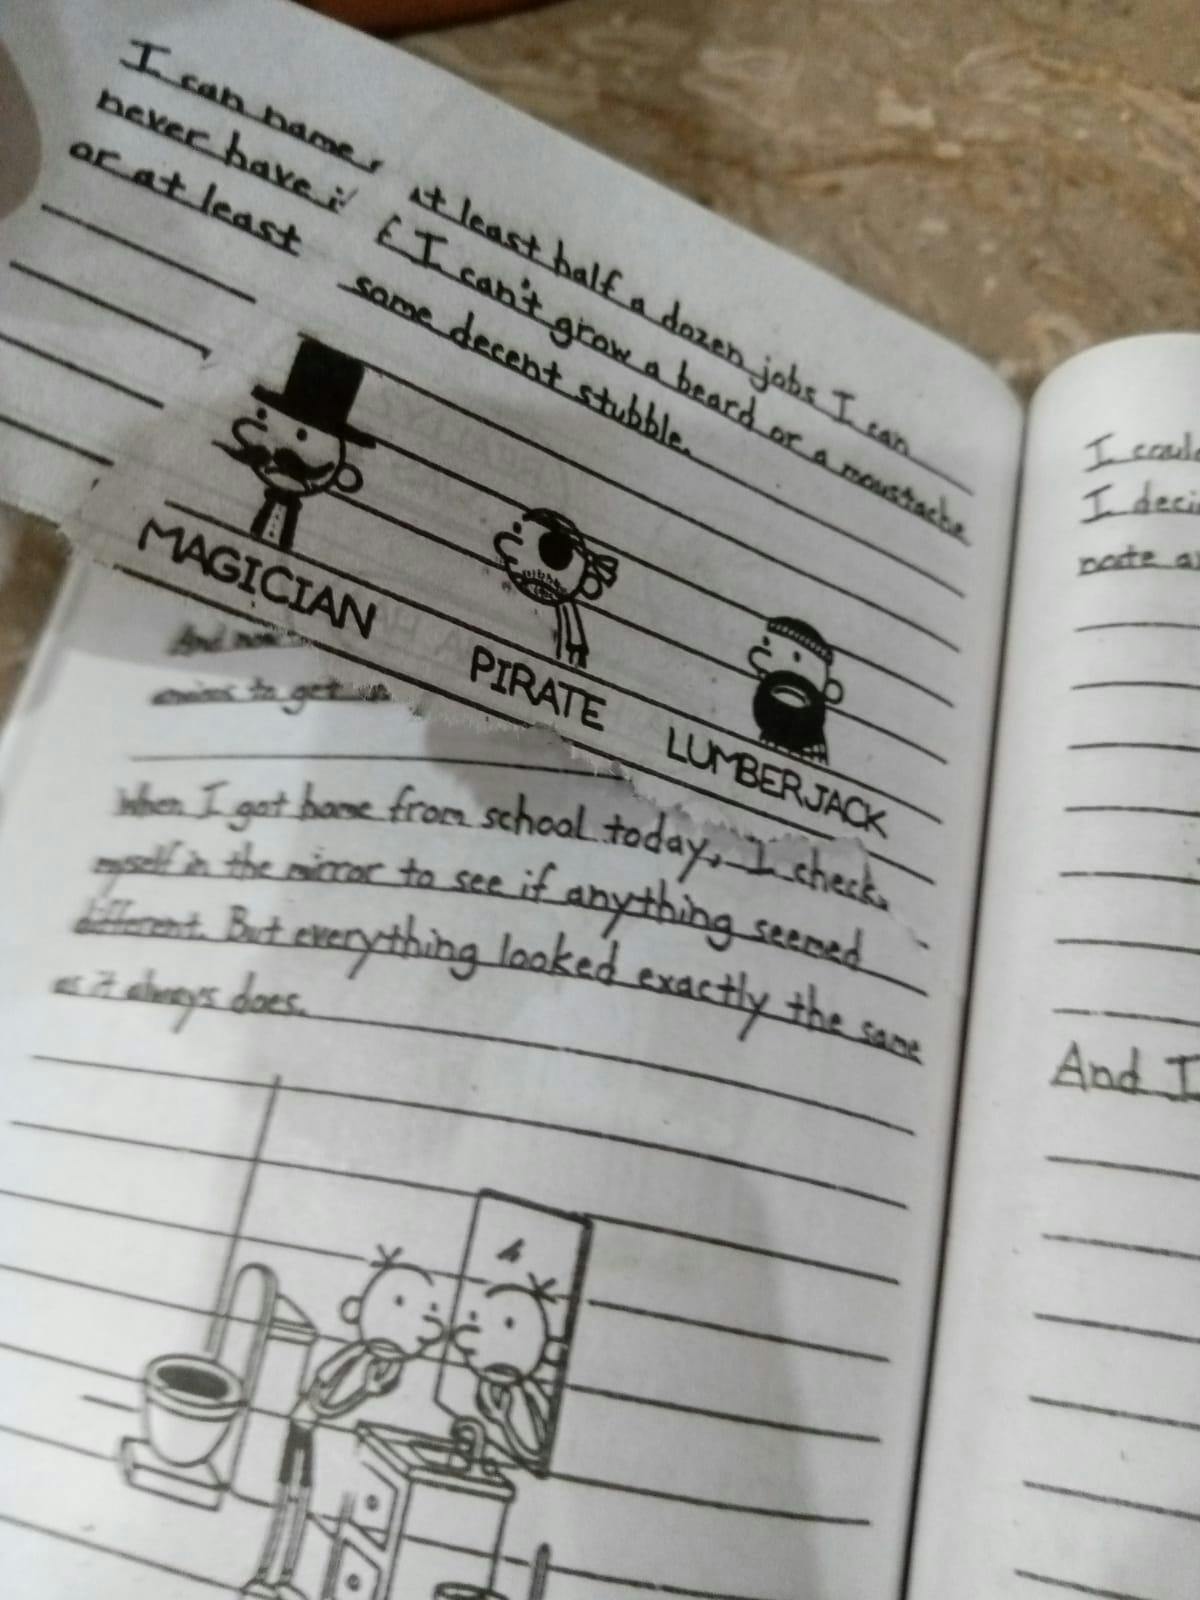 I can name at least half a dozen jobs I can
never have if I can't grow a beard or a moustache
or at least some decent stubble.
MAGICIAN
PIRATE
LUMBERJACK
And now
to get
When I got home from school today, I check
myself in the mirror to see if anything seemed
different. But everything looked exactly the same
as it always does.
I
I
note
And I